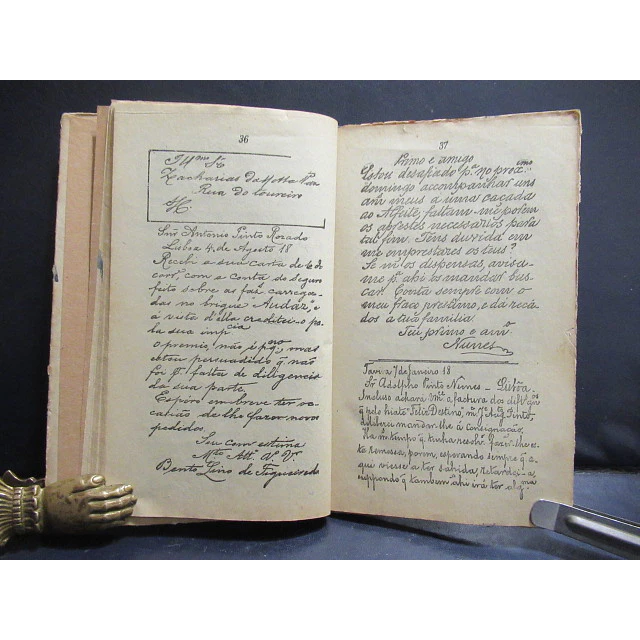 36
Illmo Sr
Zacharias da Motta Paz
Rua do Loureiro
Snr Antonio Pinto Rozado
Lisboa 4, de Agosto 18
Recebi a sua carta de 6 do
corr.e, com a conta do seguro
feito sobre as faz.as carrega-
das no brigue "Audaz", e
á vista d'ella creditei-o pe-
la sua impcia
o premio, não é pqno, mas
estou persuadido q. não
foi p.r falta de diligencia
da sua parte.
Espero em breve ter oc-
casião de lhe fazer novos
pedidos.
Sou com estima
Mto Att.o V.or
Bento Lino de Figueiredo
37
Primo e amigo
Estou desafiado p.a no proximo
domingo accompanhar uns
am.os meus a uma caçada
ao Alfeite, faltam-me porem
os aprestes necessarios para
tal fim. Tens duvida em
me emprestares os teus?
Se m'os dispensas, avisa-
me p.a ahi os mandar bus-
car. Conta sempre com o
meu fraco prestimo, e dá reca-
dos á tua familia
Teu primo e am.o
Nunes
Tavira 7 de Janeiro 18
Sr Adolpho Pinto Nunes - Lisbôa.
Incluso achará Vm.ce a factura dos diff.es
q. pelo hiate "Feliz Destino", m.e José Pinto,
deliberei mandar-lhe á consignação,
Ha m.to tempo q. tinha resolv.o fazer-lhe es-
ta remessa, porem, esperando sempre q. a-
qui viesse a ter sahida, retardei-a,
suppondo q. tambem ahi irá ter alg.ma